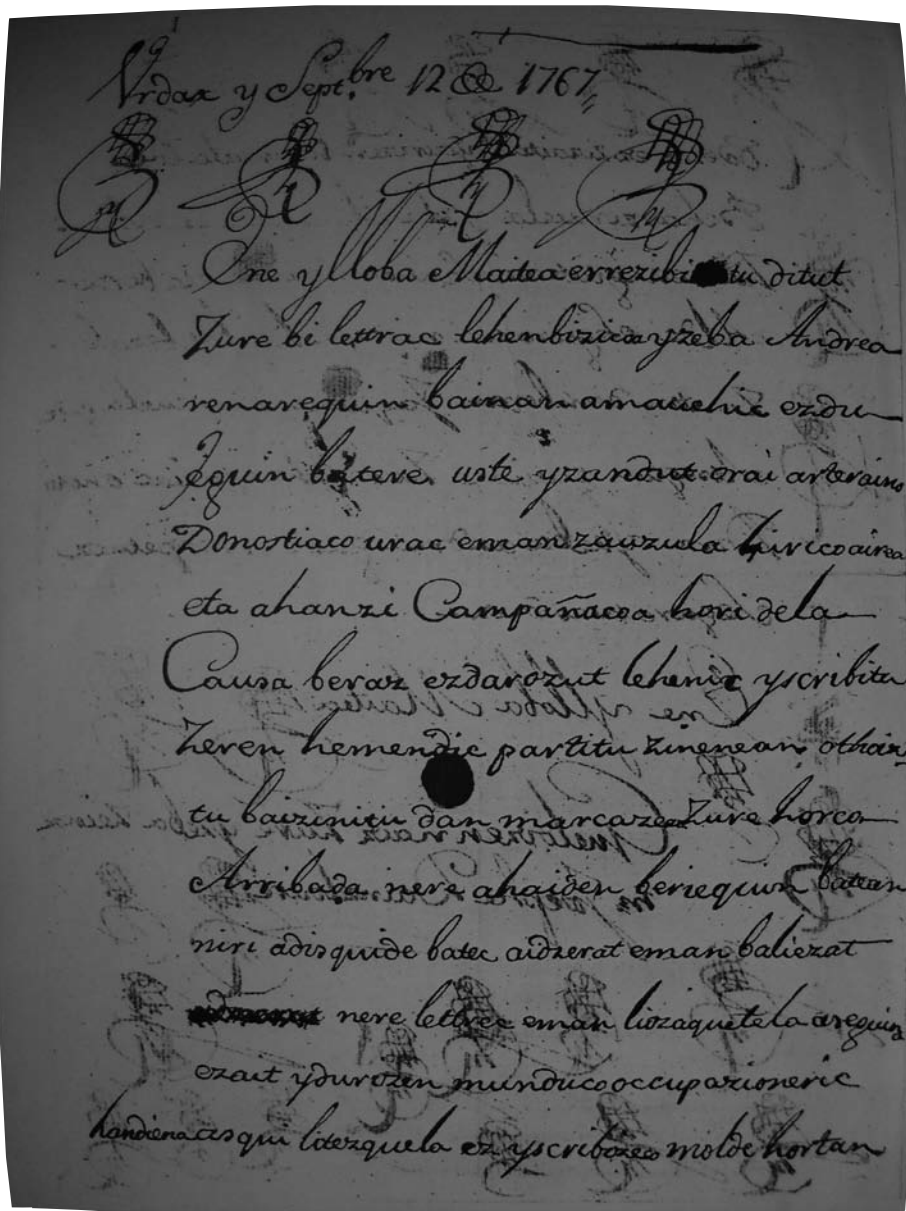 Vrdax y Sept.bre 12 de 1767
Ene ylloba Maitea errezibitu ditut
Zure bi lettrac lehenbizicoa yzeba Andrea
renarequin bainan amauchic ezdu
eguin batere uste yzandut orai arteraino
Donostiaco urac eman zauzula hirico airea
eta ahanzi Campañacoa hori dela
Causa beraz ezdarozut lehenic yscribitu
Zeren hemendic partitu zinenean othoiz
tu baizinitudan marcazea Zure horco
Arribada nere ahaiden beriequin batean
niri adisquide batec aidzerat eman baliezat
nere lettrec eman liozaquetela areguina
ezait yduritzen munduco occupazioneric
handiena asqui litezquela ez yscribatzeco molde hortan